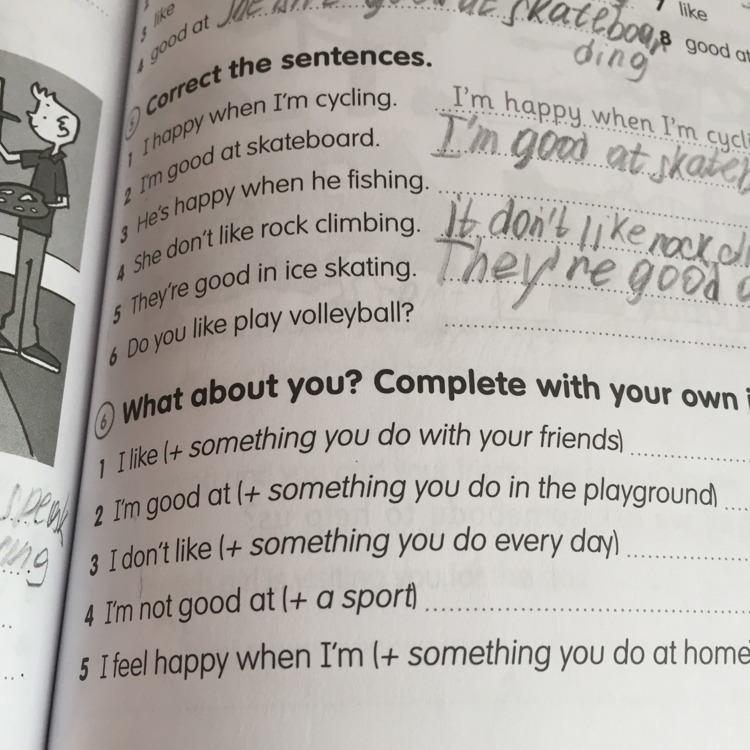 3 like
7 like
4 good at
good at skateboar
8 good at
ding
5 Correct the sentences.
1 I happy when I'm cycling. I'm happy when I'm cycli
2 I'm good at skateboard. I'm good at skateb
3 He's happy when he fishing.
4 She don't like rock climbing. It don't like rock cli
5 They're good in ice skating. They're good
6 Do you like play volleyball?
6 What about you? Complete with your own i
1 I like (+ something you do with your friends)
2 I'm good at (+ something you do in the playground)
3 I don't like (+ something you do every day)
4 I'm not good at (+ a sport)
5 I feel happy when I'm (+ something you do at home